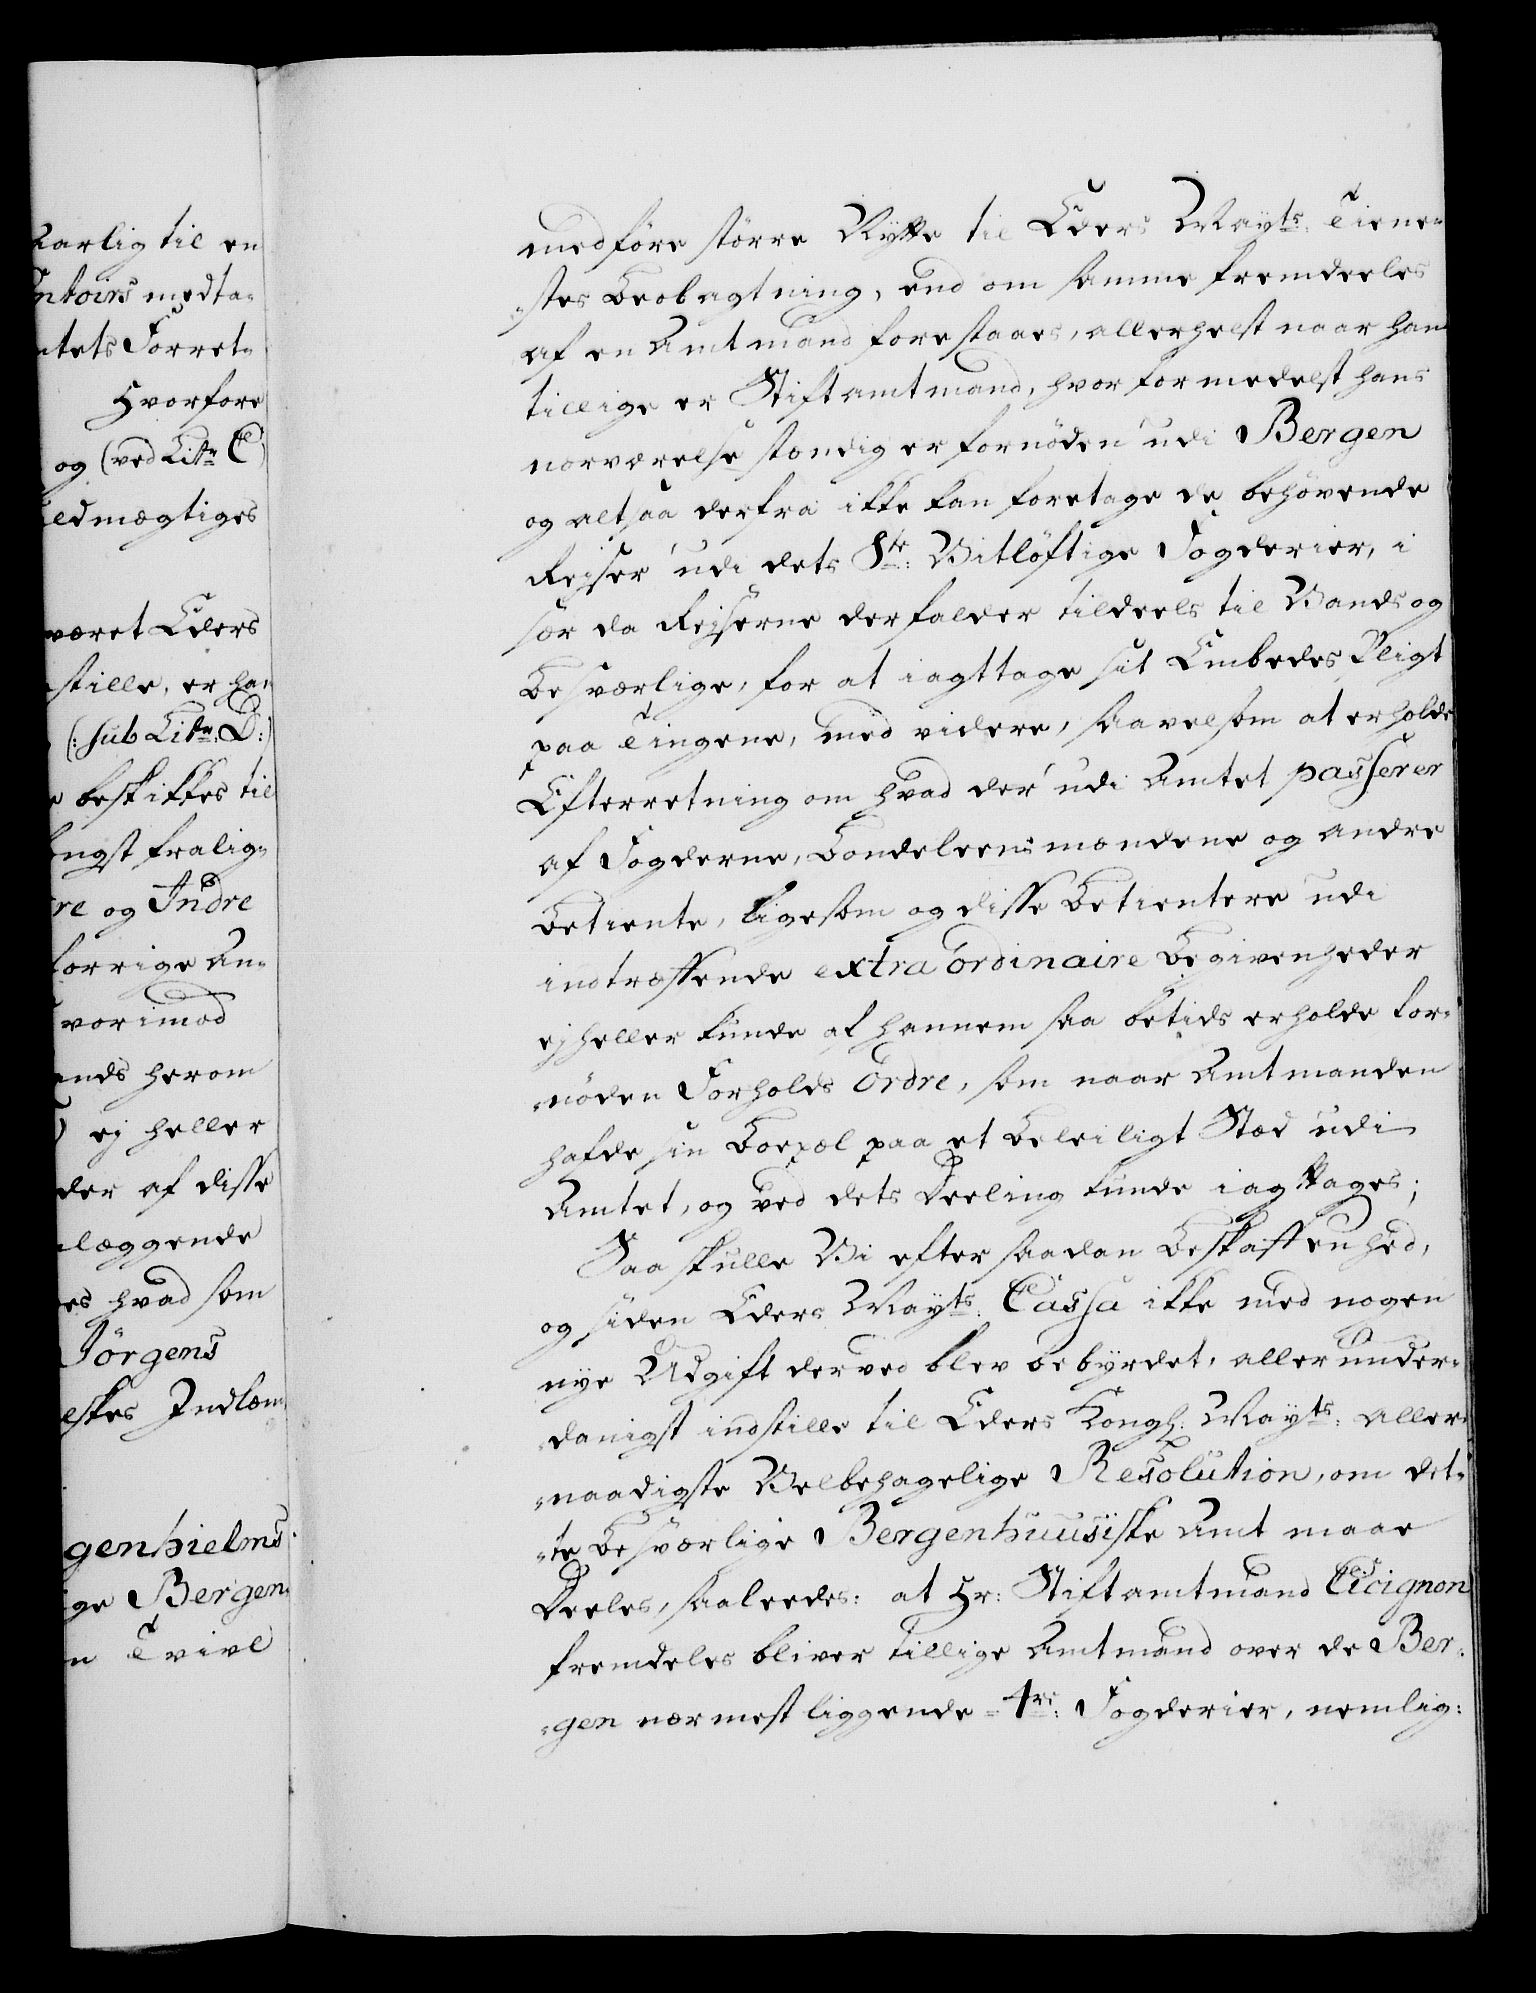 Aarlig til en
ntoirs medta-
tets Forret-
Hvorfore
og (ved Litr C)
ldmægtiges
været Eders
stille, er ha-
(: sub Litr: D:)
beskikkes til
ngst fralig-
re og Indre
forrige An-
vorimod
ands herom
ej heller
der af disse
læggende
es hvad som
Jörgens
elskes Indkom-
genhielms
ge Bergen-
n Tvivl
medföre större Nytte til Eders Mayts: Tiene-
-stes Beobagtning, end om samme fremdeeles
af en Amtmand forestaaes, allerhelst naar han
tillige er Stiftamtmand, hvorformedelst hans
nærværelse stændig er fornöden udi Bergen
og altsaa derfra ikke kan foretage de behövende
Rejser udi dets 8te: Vitlöftige Fogderier, i
sær da Rejserne der falder tildeels til Vands og
Besværlige, for at iagttage sit Embedes Pligt
paa Tingene, med videre, saavelsom at erholde
Efterretning om hvad der udi Amtet passerer
af Fogderne, Bondeleensmændene og andre
Betiente, ligesom og disse Betientere udi
indtræffende extra ordinaire Begivenheder
ej heller kunde af hannem saa betids erholde for-
-nöden Forholds Ordre, som naar Amtmanden
hafde sin Boepæl paa et beleiligt Stæd udi
Amtet, og ved dets Deeling kunde iagttages;
Saa skulle Vi efter saadan Beskaffenhed,
og siden Eders Mayts: Cassa ikke med nogen
nye Udgift derved blev bebyrdet, allerunder-
-danigst indstille til Eders Kongl: Mayts: aller-
-naadigste Velbehagelige Resolution, om det-
-te Besværlige Bergenhuusiske Amt maae
Deeles, saaleedes: at Hr: Stiftamtmand Cicignon
fremdeles bliver tillige Amtmand over de Ber-
-gen nærmest liggende 4re: Fogderier, nemlig: